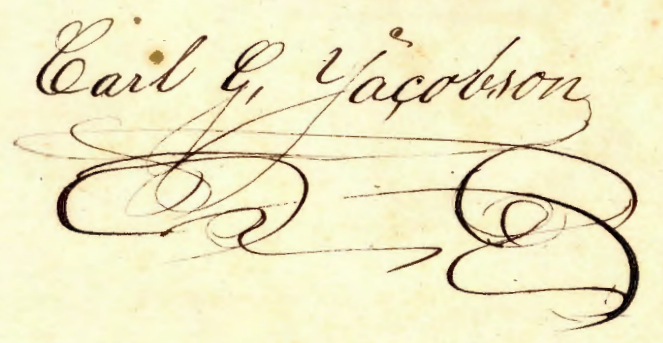 Carl G. Yacobson